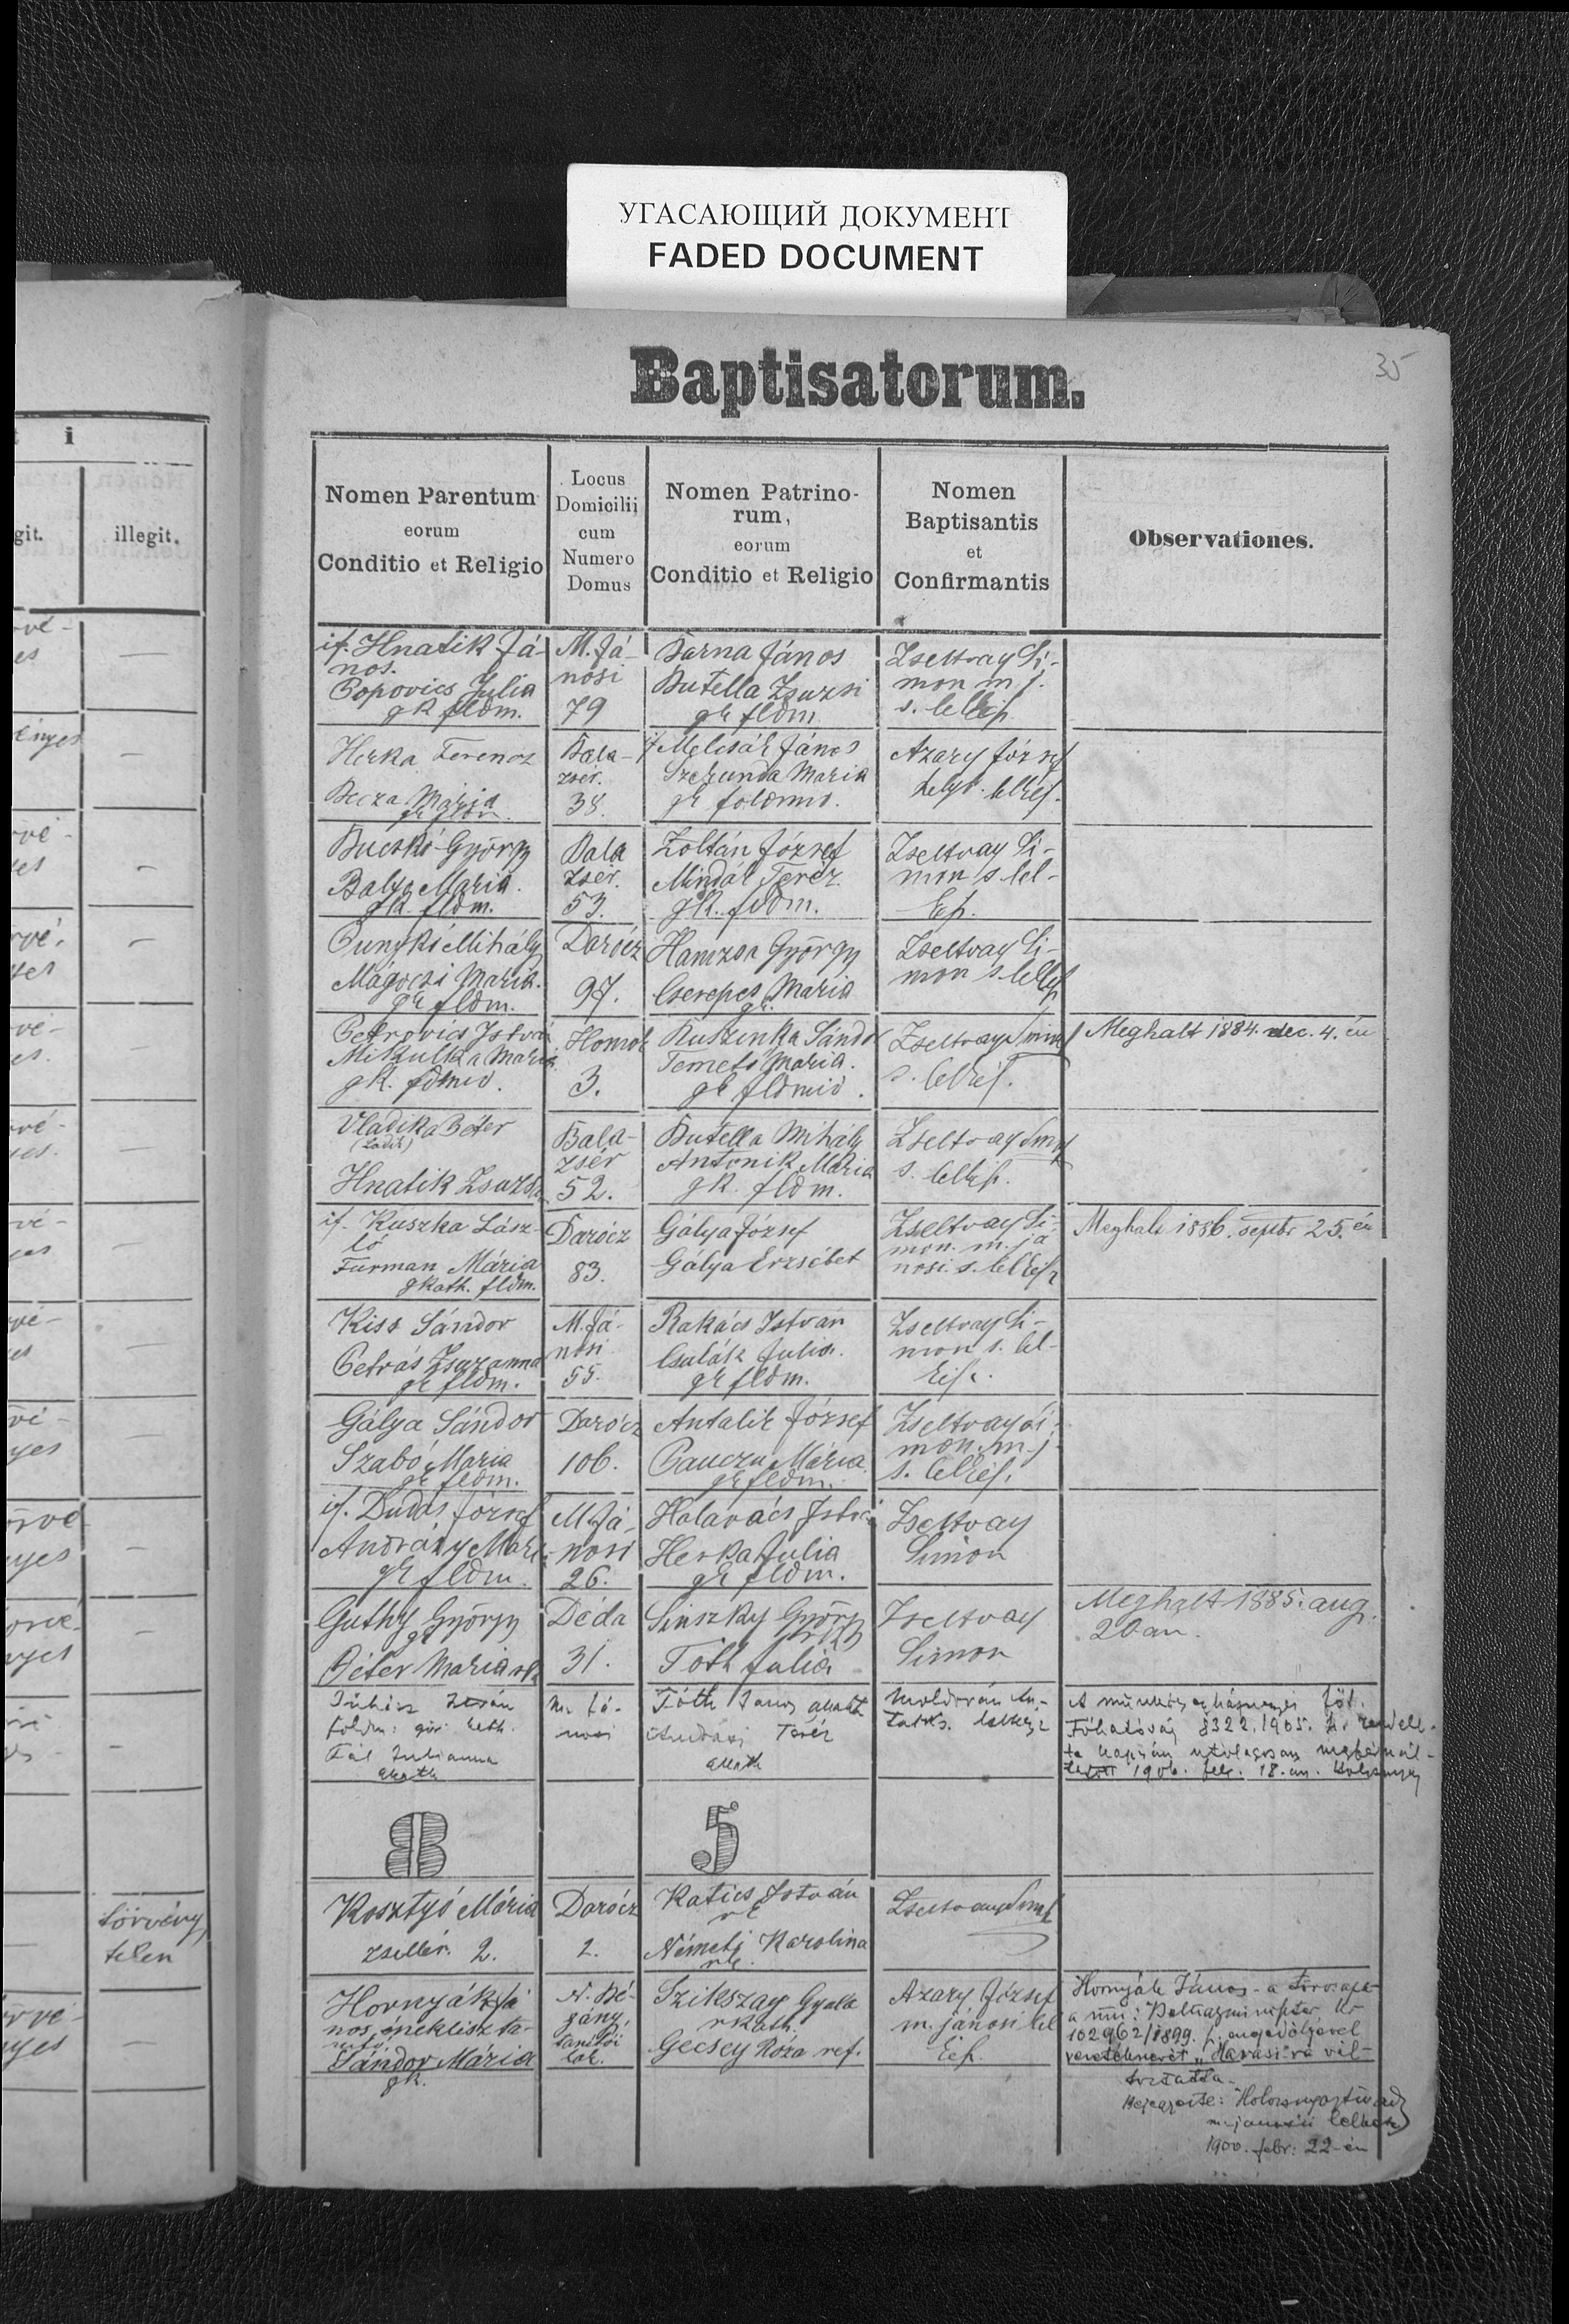 УГАСАЮЩИЙ ДОКУМЕНТ
FADED DOCUMENT
35
Baptisatorum.
i
git.
illegit.
Nomen Parentum
eorum
Conditio et Religio
Locus
Domicilij
cum
Numero
Domus
Nomen Patrino-
rum,
eorum
Conditio et Religio
Nomen
Baptisantis
et
Confirmantis
Observationes.
if. Hnatik Já-
nos.
Popovics Julia
gk fldm.
M. Já-
nosi
79
Barna János
Butella Zsuzsi
gk fldm
Zseltvay Si-
mon m. j.
s. lelkip
Herka Ferencz
Becza Mária
gk fldm.
Bala-
zsér.
38.
if Melcsák János
Szekunda Maria
gk foldmiv.
Azary József
helyb. lelkész.
Bucskó György
Balya Maria.
gk. fldm.
Bala
zsér.
53.
Zoltán József
Mindák Teréz.
gk. fldm.
Zseltvay Si-
mon s. lel-
kip.
Punykó Mihály
Mágocsi Maria.
gk fldm.
Darócz
97.
Hamzsa György
Cserepes Mária
gk.
Zseltvay Si-
mon s. lelkip
Petrovics István
Mikulka Maria
gk. fdmiv.
Homok
3.
Ruszinka Sándor
Temető Maria.
gk fldmiv.
Zseltvay Simon
s. lelkip.
Meghalt 1884. dec. 4. én
Vladika Péter
(Ladik)
Hnatik Zsuzsa
Bala-
zsér
52.
Butella Mihály
Antonik Mária
gk. fldm.
Zseltvay Simon
s. lelkip.
if. Ruszka Lász-
ló
Furman Mária
gkath. fldm.
Darócz
83.
Gálya József
Gálya Erzsébet
Zseltvay Si-
mon. m. já
nosi. s. lelkip
Meghalt 1886. septbr 25. én
Kiss Sándor
Petrás Zsuzanna
gk fldm.
M. Já-
nosi
55.
Rakács István
Csalák Julia.
gk fldm.
Zseltvay Si-
mon s. lel-
kip.
Gálya Sándor
Szabó Maria
gk fldm.
Darócz
106.
Antalik József
Pauczu Mária
gk fldm.
Zseltvay Si-
mon. m. j.
s. lelkip.
if. Dudás József
Andrásy Mari
gk fldm.
M. Já-
nosi
26.
Holavács István
Herka Julia
gk fldm.
Zseltvay
Simon
Guthy György
gk
Péter Maria rk
Déda
31.
Sinszky György
Tóth Julia
Zseltvay
Simon
Meghalt 1885. aug.
20 an.
Juhász István
földm: gör. kath.
Pál Julianna
gkath
M. Já-
nosi
Tóth János gkath
Andrási Teréz
gkath
Moldován An-
tal s. lelkész
A munkács egyházmegyei
1905.
1906. feb. 18. án.
8
5
Kosztyó Mária
zsellér. 2.
Darócz
2.
Katics István
rk
Németi Karolina
rk.
Zseltvay Simon
törvény
telen
Hornyák Já
nos, éneklisz ta-
nitó
Sándor Mária
gk.
N. Bé-
gány,
tanitói
lak.
Szikszay Gyula
rkath.
Gecsey Róza ref.
Azary József
m. jánosi lel
kip.
Hornyák János - a
a m: Belügyminiszter úr
102962/1899. sz. engedéljével
vezetéknevét „Havasi"ra vál-
toztatta.
Bejegyezte:
m. jánosii lelkész
1900. febr: 22-én